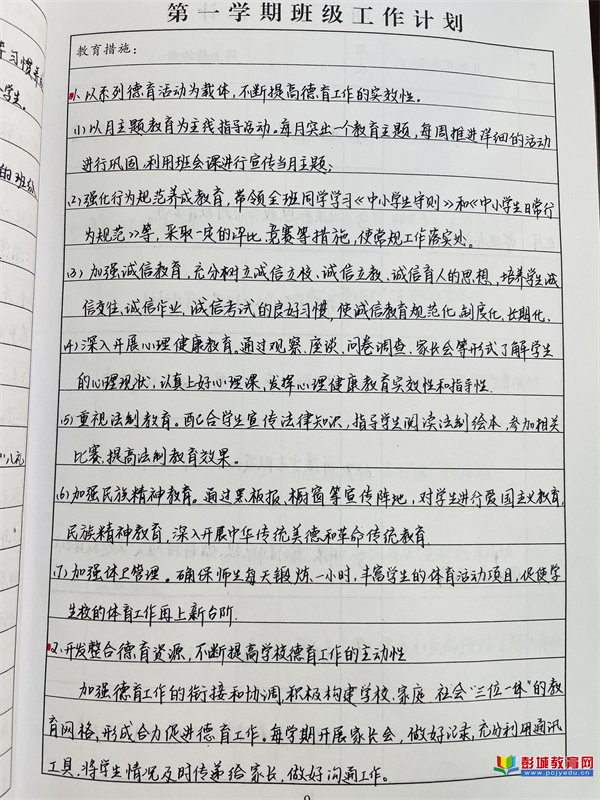 第一学期班级工作计划
教育措施：
1、以系列德育活动为载体，不断提高德育工作的实效性。
(1)以月主题教育为主线指导活动。每月突出一个教育主题，每周推进详细的活动
进行巩固，利用班会课进行宣传当月主题；
(2)强化行为规范养成教育，带领全班同学学习《中小学生守则》和《中小学生日常行
为规范》等，采取一定的评比、竞赛等措施，使常规工作落实处。
(3)加强诚信教育。充分树立诚信立校、诚信立教、诚信育人的思想，培养学生诚
信交往、诚信作业、诚信考试的良好习惯，使诚信教育规范化、制度化、长期化。
(4)深入开展心理健康教育。通过观察、座谈、问卷调查、家长会等形式了解学生
的心理现状，认真上好心理课，发挥心理健康教育实效性和指导性.
(5)重视法制教育。配合学生宣传法律知识，指导学生阅读法制绘本，参加相关
比赛，提高法制教育效果。
(6)加强民族精神教育。通过黑板报、橱窗等宣传阵地，对学生进行爱国主义教育、
民族精神教育，深入开展中华传统美德和革命传统教育
(7)加强体卫管理。确保师生每天锻炼一小时，丰富学生的体育活动项目，促使学
生校的体育工作再上新台阶.
2、开发整合德育资源，不断提高学校德育工作的主动性
加强德育工作的衔接和协调，积极构建学校、家庭、社会“三位一体”的教
育网格，形成合力促进德育工作。每学期开展家长会，做好记录，充分利用通讯
工具，将学生情况及时传递给家长，做好沟通工作。
彭城教育网
www.pcjyedu.cn